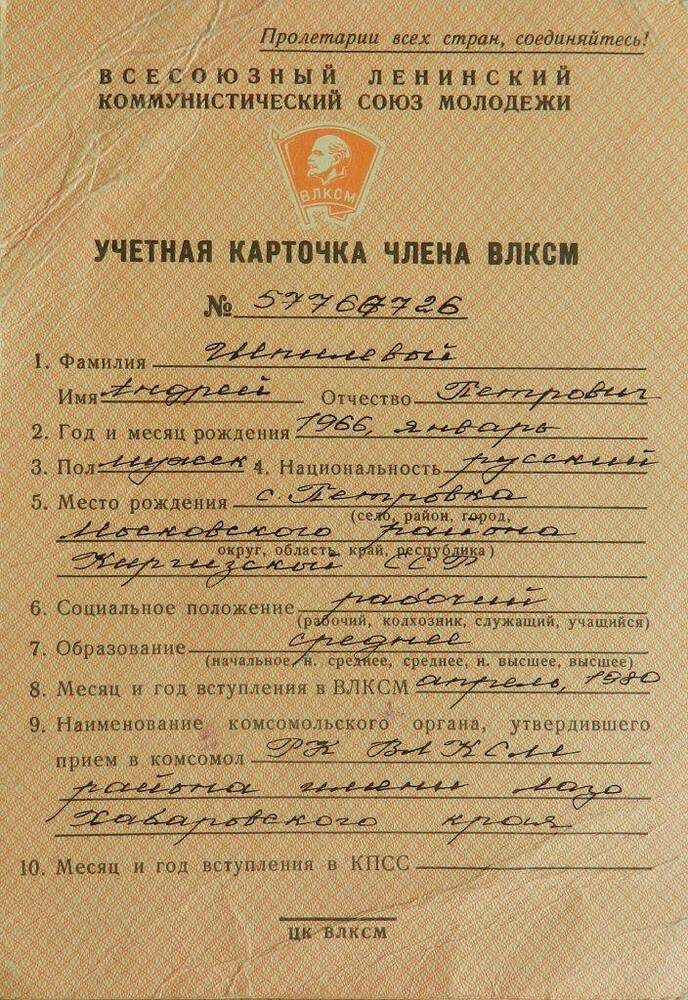 Пролетарии всех стран, соединяйтесь!
ВСЕСОЮЗНЫЙ ЛЕНИНСКИЙ
КОММУНИСТИЧЕСКИЙ СОЮЗ МОЛОДЕЖИ
ВЛКСМ
УЧЕТНАЯ КАРТОЧКА ЧЛЕНА ВЛКСМ
№ 57767726
1. Фамилия Шпилевый
Имя Андрей Отчество Петрович
2. Год и месяц рождения 1966, январь
3. Пол мужск 4. Национальность русский
5. Место рождения с. Петровка
(село, район, город,
Московского района
округ, область, край, республика)
Киргизской ССР
6. Социальное положение рабочий
(рабочий, колхозник, служащий, учащийся)
7. Образование среднее
(начальное, н. среднее, среднее, н. высшее, высшее)
8. Месяц и год вступления в ВЛКСМ апрель, 1980
9. Наименование комсомольского органа, утвердившего
прием в комсомол РК ВЛКСМ
района имени Лазо
Хабаровского края
10. Месяц и год вступления в КПСС
ЦК ВЛКСМ